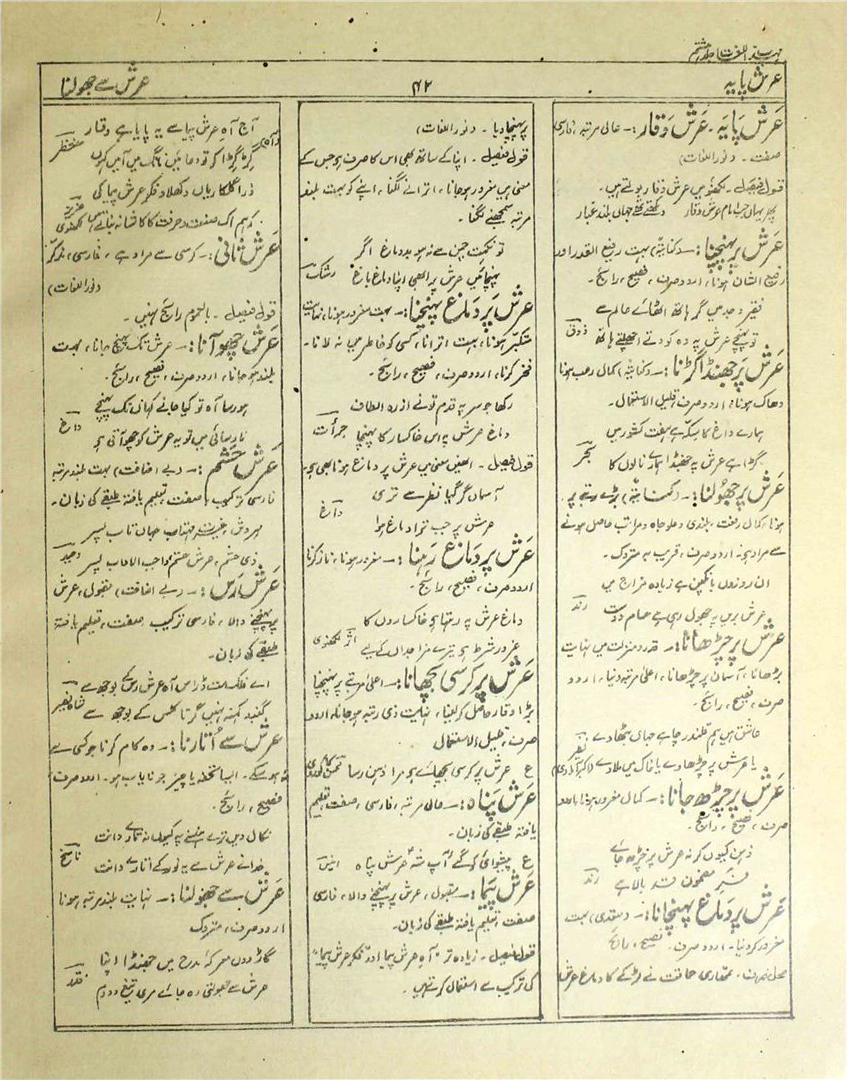 مہذب اللغات جلد ہشتم
عرش پایہ
۴۲
عرش سے جھولنا
عَرش پَایَہ۔ عَرش وَقار:۔ عالی مرتبہ، فارسی
صفت۔ (نور اللغات)
قول فیصل۔ لکھنؤ میں عرش وقار بولتے ہیں۔
پھر یہاں حب امام عرش وقار دیکھتے تھے جہاں بلند غبار
عَرش پر پہنچنا:۔ (کنایۃً) بہت رفیع القدر اور
رفیع الشان ہونا، اردو صرف، فصیح، رائج۔
فقیر وجد میں گر ہاتھ اٹھائے عالم سے
تو پہنچے عرش پہ وہ کودتے اچھلتے ہاتھ ذوق
عَرش پر جھنڈا گڑنا:۔ (کنایۃً) کمال رعب ہونا
دھاک ہونا، اردو صرف، قلیل الاستعمال۔
ہمارے داغ کا سکہ ہے ہفت کشور میں
گڑا ہے عرش پہ جھنڈا ہمارے نالوں کا بحر
عَرش پر جھولنا:۔ (کنایۃً) بڑے رتبے پر
ہونا، کمال رفعت، بلندی و علو جاہ و مراتب حاصل ہونے
سے مراد ہے۔ اردو صرف، قریب بہ متروک۔
ان روزوں بانکپن ہے زیادہ مزاج میں
عرش بریں پہ جھول رہی ہے حسام دوست رند
عَرش پر چڑھانا:۔ قدر و منزلت میں نہایت
بڑھانا، آسمان پر چڑھانا، اعلیٰ مرتبہ دنیا، اردو
صرف، فصیح، رائج۔
عاشق ہیں ہم قلندر چاہے جہاں بٹھا دے
یا عرش پر چڑھا دے یا خاک میں ملا دے نظیر (اکبرآبادی)
عَرش پر چڑھ جانا:۔ کمال مغرور ہونا، اردو
صرف، فصیح، رائج۔
ذہن کیوں کر نہ عرش پر چڑھ جائے
فکر مضمون قد بالا ہے رند
عَرش پر دماغ پہنچانا:۔ (متعدی) بہت
مغرور کر دینا۔ اردو صرف۔ فصیح، رائج
محل صرف۔ تمھاری حماقت نے لڑکے کا دماغ عرش
پر پہنچا دیا۔ (نور اللغات)
قول فیصل۔ اپنا کے ساتھ بھی اس کا صرف ہے جس کے
معنی ہیں مغرور ہو جانا، اترانے لگنا، اپنے کو بہت بلند
مرتبہ سمجھنے لگنا۔
تو نکہت چمن سے نہ ہو بد دماغ اگر
پہنچائیں عرش پر ابھی اپنا دماغ باغ رشک
عَرش پر دماغ پہنچنا:۔ بہت مغرور ہونا، نہایت
متکبر ہونا، بہت اترانا، کسی کو خاطر میں نہ لانا۔
فخر کرنا، اردو صرف، فصیح، رائج۔
رکھا جو سر پہ قدم تو نے از رہ الطاف
دماغ عرش پہ اس خاکسار کا پہنچا جرأت
قول فیصل۔ انھیں معنی میں عرش پر دماغ ہونا بھی ہے۔
آسماں گر گیا نظر سے تری
عرش پر جب ترا دماغ ہوا داغ
عَرش پر دماغ رَہنا:۔ مغرور ہونا، ناز کرنا
اردو صرف، فصیح، رائج۔
دماغ عرش پہ رہتا ہے خاکساروں کا
غرور شرط ہے تیرے مزاجداں کے لیے اثر لکھنوی
عَرش پر کرسی بچھانا:۔ اعلیٰ مرتبے پر پہنچنا
بڑا وقار حاصل کر لینا، نہایت ذی رتبہ ہو جانا، اردو
صرف، قلیل الاستعمال
ع عرش پر کرسی بچھائے ہے مرا ذہن رسا
عَرش پناہ:۔ عالی مرتبہ، فارسی، صفت، تعلیم
یافتہ طبقے کی زبان۔
ع پیشوائی کو گئے آپ شہ عرش پناہ انیس
عَرش پَیما:۔ مقبول، عرش پر پہنچنے والا، فارسی
صفت، تعلیم یافتہ طبقے کی زبان۔
قول فیصل۔ زیادہ تر "آہ عرش پیما" اور "فکر عرش پیما"
کی ترکیب سے استعمال کرتے ہیں۔
آج آہ عرش پیما سے یہ پایا ہے وقار
گڑگڑا کر تو دعائیں مانگ میں آمیں کہوں منتظر
ذرا گلکاریاں دکھلا دے فکر عرش پیما کی
کہ ہم اک صنعت و حرفت کا کاشانہ بناتے ہیں عزیز لکھنوی
عَرش ثانی:۔ کرسی سے مراد ہے، فارسی، مذکر
(نور اللغات)
قول فیصل۔ بالعموم رائج نہیں۔
عَرش چھو آنا:۔ عرش تک پہنچ جانا، بہت
بلند ہو جانا، اردو صرف، فصیح، رائج۔
ہو رسا آہ تو کیا جانے کہاں تک پہنچے
نارسائی میں تو یہ عرش کو چھو آتی ہے داغ
عَرش حَشم:۔ (بے اضافت) بہت بلند مرتبہ
فارسی ترکیب، صفت، تعلیم یافتہ طبقے کی زبان۔
مہروش، غیرت مہتاب جہاں تاب پسر
ذی حشم، عرش حشم واجب الآداب پسر وحید
عَرش رَس:۔ (بے اضافت) مقبول، عرش
پر پہنچنے والا، فارسی ترکیب، صفت، تعلیم یافتہ
طبقے کی زبان۔
اے فلک مت ڈر اس آہ عرش رس کے بوجھ سے
گنبد کہنہ نہیں گرتا کلس کے بوجھ سے شاہ نصیر
عَرش سے اُتارنا:۔ وہ کام کرنا جو کسی سے
نہ ہو سکے۔ ایسا تحفہ یا چیز جو نایاب ہو۔ اردو صرف
فصیح، رائج۔
نکال دیں ترے ہنسنے پہ کہکشاں نے دانت
خدا نے عرش سے یہ نور کے اتارے دانت ناسخ
عَرش سے جھولنا:۔ نہایت بلند مرتبہ ہونا
اردو صرف، متروک
گاڑ دوں معرکہ مدح میں جھنڈا اپنا
عرش سے جھولتی رہ جائے مری تیغ دو دم قدر